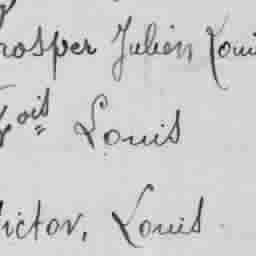 rosper Julien Loui
Fois Louis
Victor, Louis